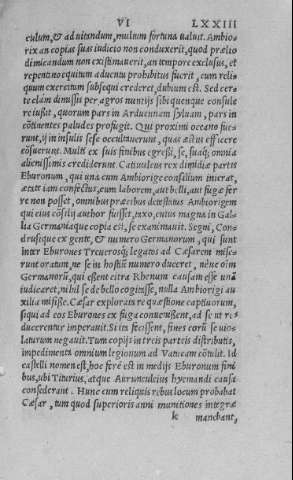 VI LXXIII
culum, & ad uitandum, multum fortuna ualuit. Ambio⸗
rix an copias suas iudicio non conduxerit, quod prælio
dimicandum non existimauerit, an tempore exclusus, et
repentino equitum aduentu prohibitus fuerit, cum reli⸗
quum exercitum subsequi crederet, dubium est. Sed cer⸗
te clam dimissis per agros nuntijs sibi quenque consule⸗
re iußit, quorum pars in Arduennam syluam, pars in
cōtinentes paludes profugit. Qui proximi oceano fue⸗
runt, ij in insulis sese occultauerunt, quas æstus efficere
cōsuerunt. Multi ex suis finibus egressi, se, suaq; omnia
alienissimis crediderunt. Catiuulcus rex dimidiæ partis
Eburonum, qui una cum Ambiorige consilium inierat,
ætate iam confectus, cum laborem, aut belli, aut fugæ fer
re non posset, omnibus precibus detestatus Ambiorigem
qui eius cōsilij author fuisset, taxo, cuius magna in Gal⸗
lia Germaniaque copia est, se exanimauit. Segni, Con⸗
drusique ex gente, & numero Germanorum, qui sunt
inter Eburones Treuerosq; legatos ad Cæsarem mise⸗
runt oratum, ne se in hostiū numero duceret, néue oīm
Germanorū, qui essent citra Rhenum causam esse unā
iudicaret, nihil se de bello cogitasse, nulla Ambiorigi au
xilia misisse. Cæsar explorata re quæstione captiuorum,
si qui ad eos Eburones ex fuga conuenissent, ad se ut re⸗
ducerentur imperauit. Si ita fecissent, fines eorū se uio⸗
laturum negauit. Tum copijs in treis parteis distributis,
impedimenta omnium legionum ad Vatucam cōtulit. Id
castelli nomen est, hoc ferè est in medijs Eburonum fini
bus, ubi Titurius, atque Aurunculeius hyemandi causa
consederant. Hunc cum reliquis rebus locum probabat
Cæsar, tum quod superioris anni munitiones integræ
k manebant,